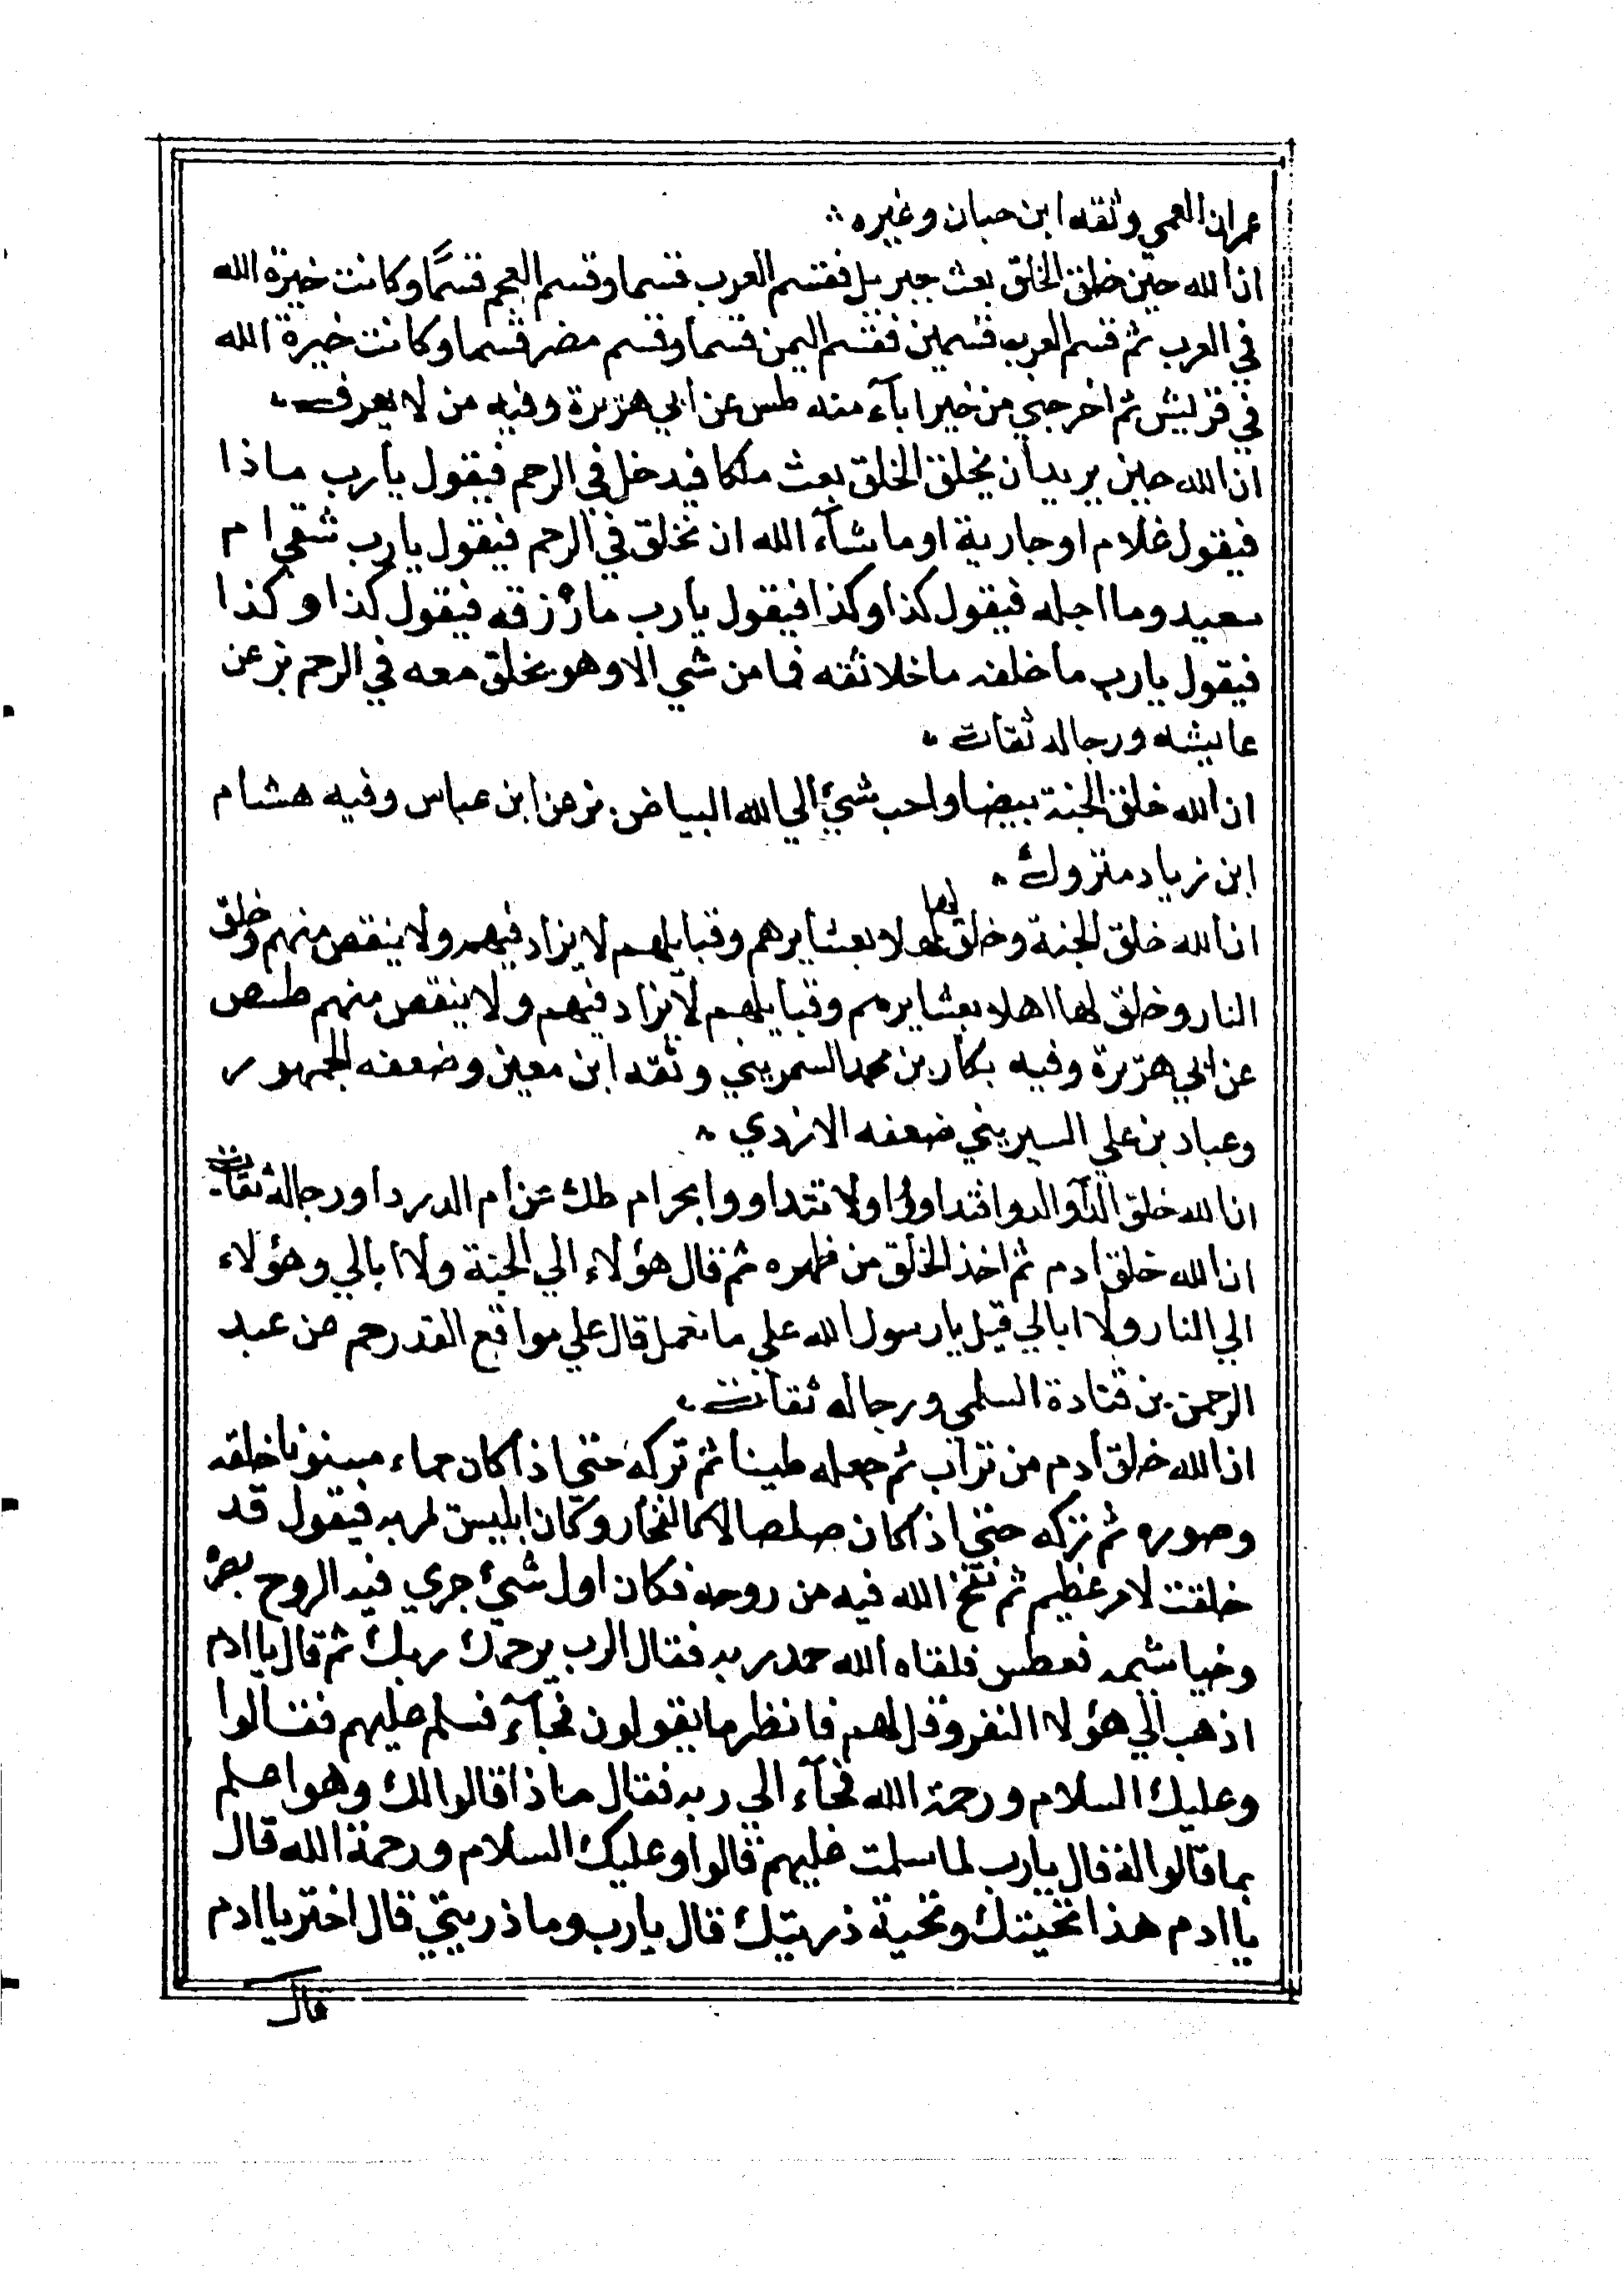 عمران العمي وثقه ابن حبان وغيره
ان الله حين خلق الخلق بعث جبريل فقسم العرب قسما وقسم العجم قسما وكانت خيرة الله
في العرب ثم قسم العرب قسمين فقسم اليمن قسما وقسم مضر قسما وكانت خيرة الله
في قريش ثم اخرجني من خير اباء منه طس عن ابي هريرة وفيه من لا يعرف
ان الله حين يريد ان يخلق الخلق بعث ملكا فيدخل في الرحم فيقول يارب ماذا
فيقول غلام او جارية او ما شآء الله ان نخلق في الرحم فيقول يارب شقي ام
سعيد وما اجله فيقول كذا وكذا فيقول يارب ما رزقه فيقول كذا وكذا
فيقول يارب ما خلقه ما خلائقه فما من شي الا وهو يخلق معه في الرحم بز عن
عايشه ورجاله ثقات
ان الله خلق الجنة بيضا واحب شئ الي الله البياض بز عن ابن عباس وفيه هشام
ابن زياد متروك
ان الله خلق الجنة وخلق لها اهلا بعشايرهم وقبايلهم لا يزاد فيهم ولا ينقص منهم وخلق
النار وخلق لها اهلا بعشايرهم وقبايلهم لا يزاد فيهم ولا ينقص منهم طص
عن ابي هريرة وفيه بكار بن محمد السمريني وثقه ابن معين وضعفه الجمهور
وعباد بن علي السيريني ضعفه الازدي
ان الله خلق الدآ والدوا فتداووا ولا تتداووا بحرام طك عن ام الدردا ورجاله ثقات
ان الله خلق ادم ثم اخذ الخلق من ظهره ثم قال هؤلاء الي الجنة ولا ابالي وهؤلاء
الي النار ولا ابالي قيل يا رسول الله علي ما نعمل قال علي مواقع القدر حم عن عبد
الرحمن بن قتادة السلمي ورجاله ثقات
ان الله خلق ادم من تراب ثم جعله طينا ثم تركه حتي اذا كان حماء مسنونا خلقه
وصوره ثم تركه حتي اذا كان صلصالا كالفخار وكان ابليس يمر به فيقول قد
خلقت لامر عظيم ثم نفخ الله فيه من روحه فكان اول شئ جري فيه الروح بصره
وخياشيمه فعطس فلقاه الله حمد ربه فقال الرب يرحمك ربك ثم قال يا ادم
اذهب الي هؤلا النفر وقل لهم فانظر ما يقولون فجآء فسلم عليهم فقالوا
وعليك السلام ورحمة الله فجآء الي ربه فقال ماذا قالوا لك وهو اعلم
بما قالوا له قال يارب لما سلمت عليهم قالوا وعليك السلام ورحمة الله قال
يا ادم هذا تحيتك وتحية ذريتك قال يارب وما ذريتي قال اختر يا ادم
قال